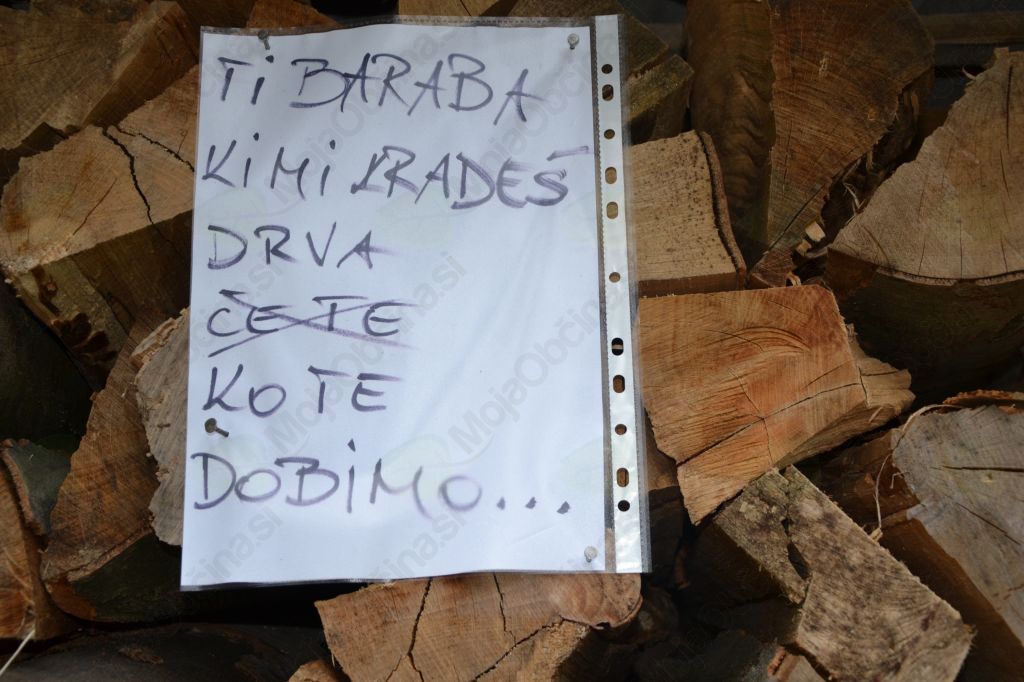 TI BARABA
KI MI KRADEŠ
DRVA
ČE TE
KO TE
DOBIMO...
MojaObčina.si